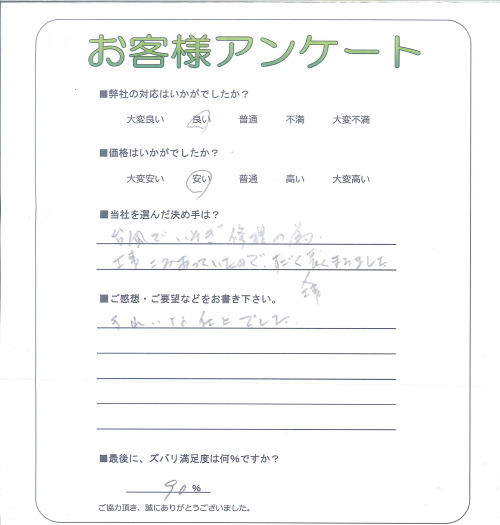 お客様アンケート
■弊社の対応はいかがでしたか？
大変良い 良い 普通 不満 大変不満
■価格はいかがでしたか？
大変安い 安い 普通 高い 大変高い
■当社を選んだ決め手は？
台風でいそぎ修理の為、
工事こみあっていたので、
工事
■ご感想・ご要望などをお書き下さい。
きれいな仕上でした。
■最後に、ズバリ満足度は何%ですか？
90 %
ご協力頂き、誠にありがとうございました。